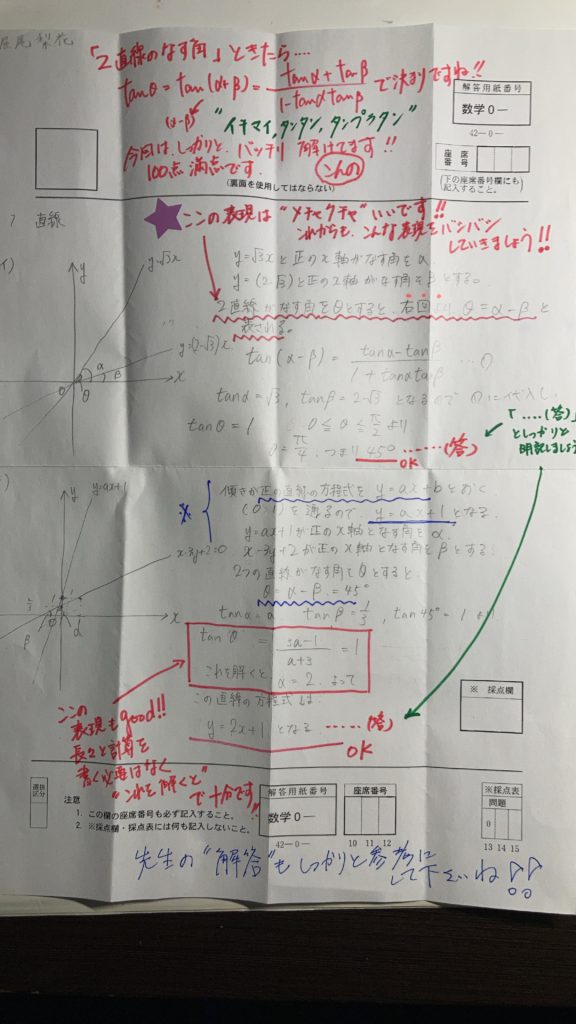 尾梨花
「2直線のなす角」ときたら....
tanθ = tan(α+β) = tanα + tanβ / 1-tanαtanβ で決まりですね!!
(α-β)
"イチマイ,タンタン,タンプラタン"
今回は、しっかりと、バッチリ解けてます!!
100点満点です。
解答用紙番号
数学0－
42－0－
座席番号
(下の座席番号欄にも記入すること。)
(裏面を使用してはならない)
7 直線
ここの表現は"メチャクチャ"いいです!!
これからも、こんな表現をバンバン
していきましょう!!
イ)
y=√3x
y=(2-√3)x
y
x
0
α
β
θ
y=√3xと正のx軸がなす角をα
y=(2-√3)と正のx軸がなす角をβとする。
2直線がなす角をθとすると、右図より、θ=α-βと
表される。
tan(α-β) = tanα-tanβ / 1+tanαtanβ …①
tanα=√3, tanβ=2-√3 となるので ①に代入し、
tanθ=1 0≦θ≦π/2 より
θ=π/4 つまり 45° ……(答)
OK
「....(答)」
としっかりと
明記しましょう
y=ax+1
x-3y+2=0
y
x
β
α
※
傾きが正の直線の方程式を y=ax+bとおく
(0,1)を通るので、y=ax+1となる
y=ax+1が正のx軸となす角をα.
x-3y+2が正のx軸となす角をβとする.
2つの直線がなす角をθとすると.
θ=α-β=45°
tanα=a tanβ=1/3, tan45°=1より
tanθ = 3a-1 / a+3 = 1
これを解くと a=2. よって
この直線の方程式は.
y=2x+1となる ……(答)
OK
この
表現もgood!!
長々と計算を
書く必要はなく
"これを解くと"
で十分です!!
※採点欄
選択区分
注意
1. この欄の座席番号も必ず記入すること。
2. ※採点欄・採点表には何も記入しないこと。
解答用紙番号
数学0－
42－0－
座席番号
10 11 12
※採点表
問題
0
13 14 15
先生の"解答"もしっかりと参考に
して下さいね!!